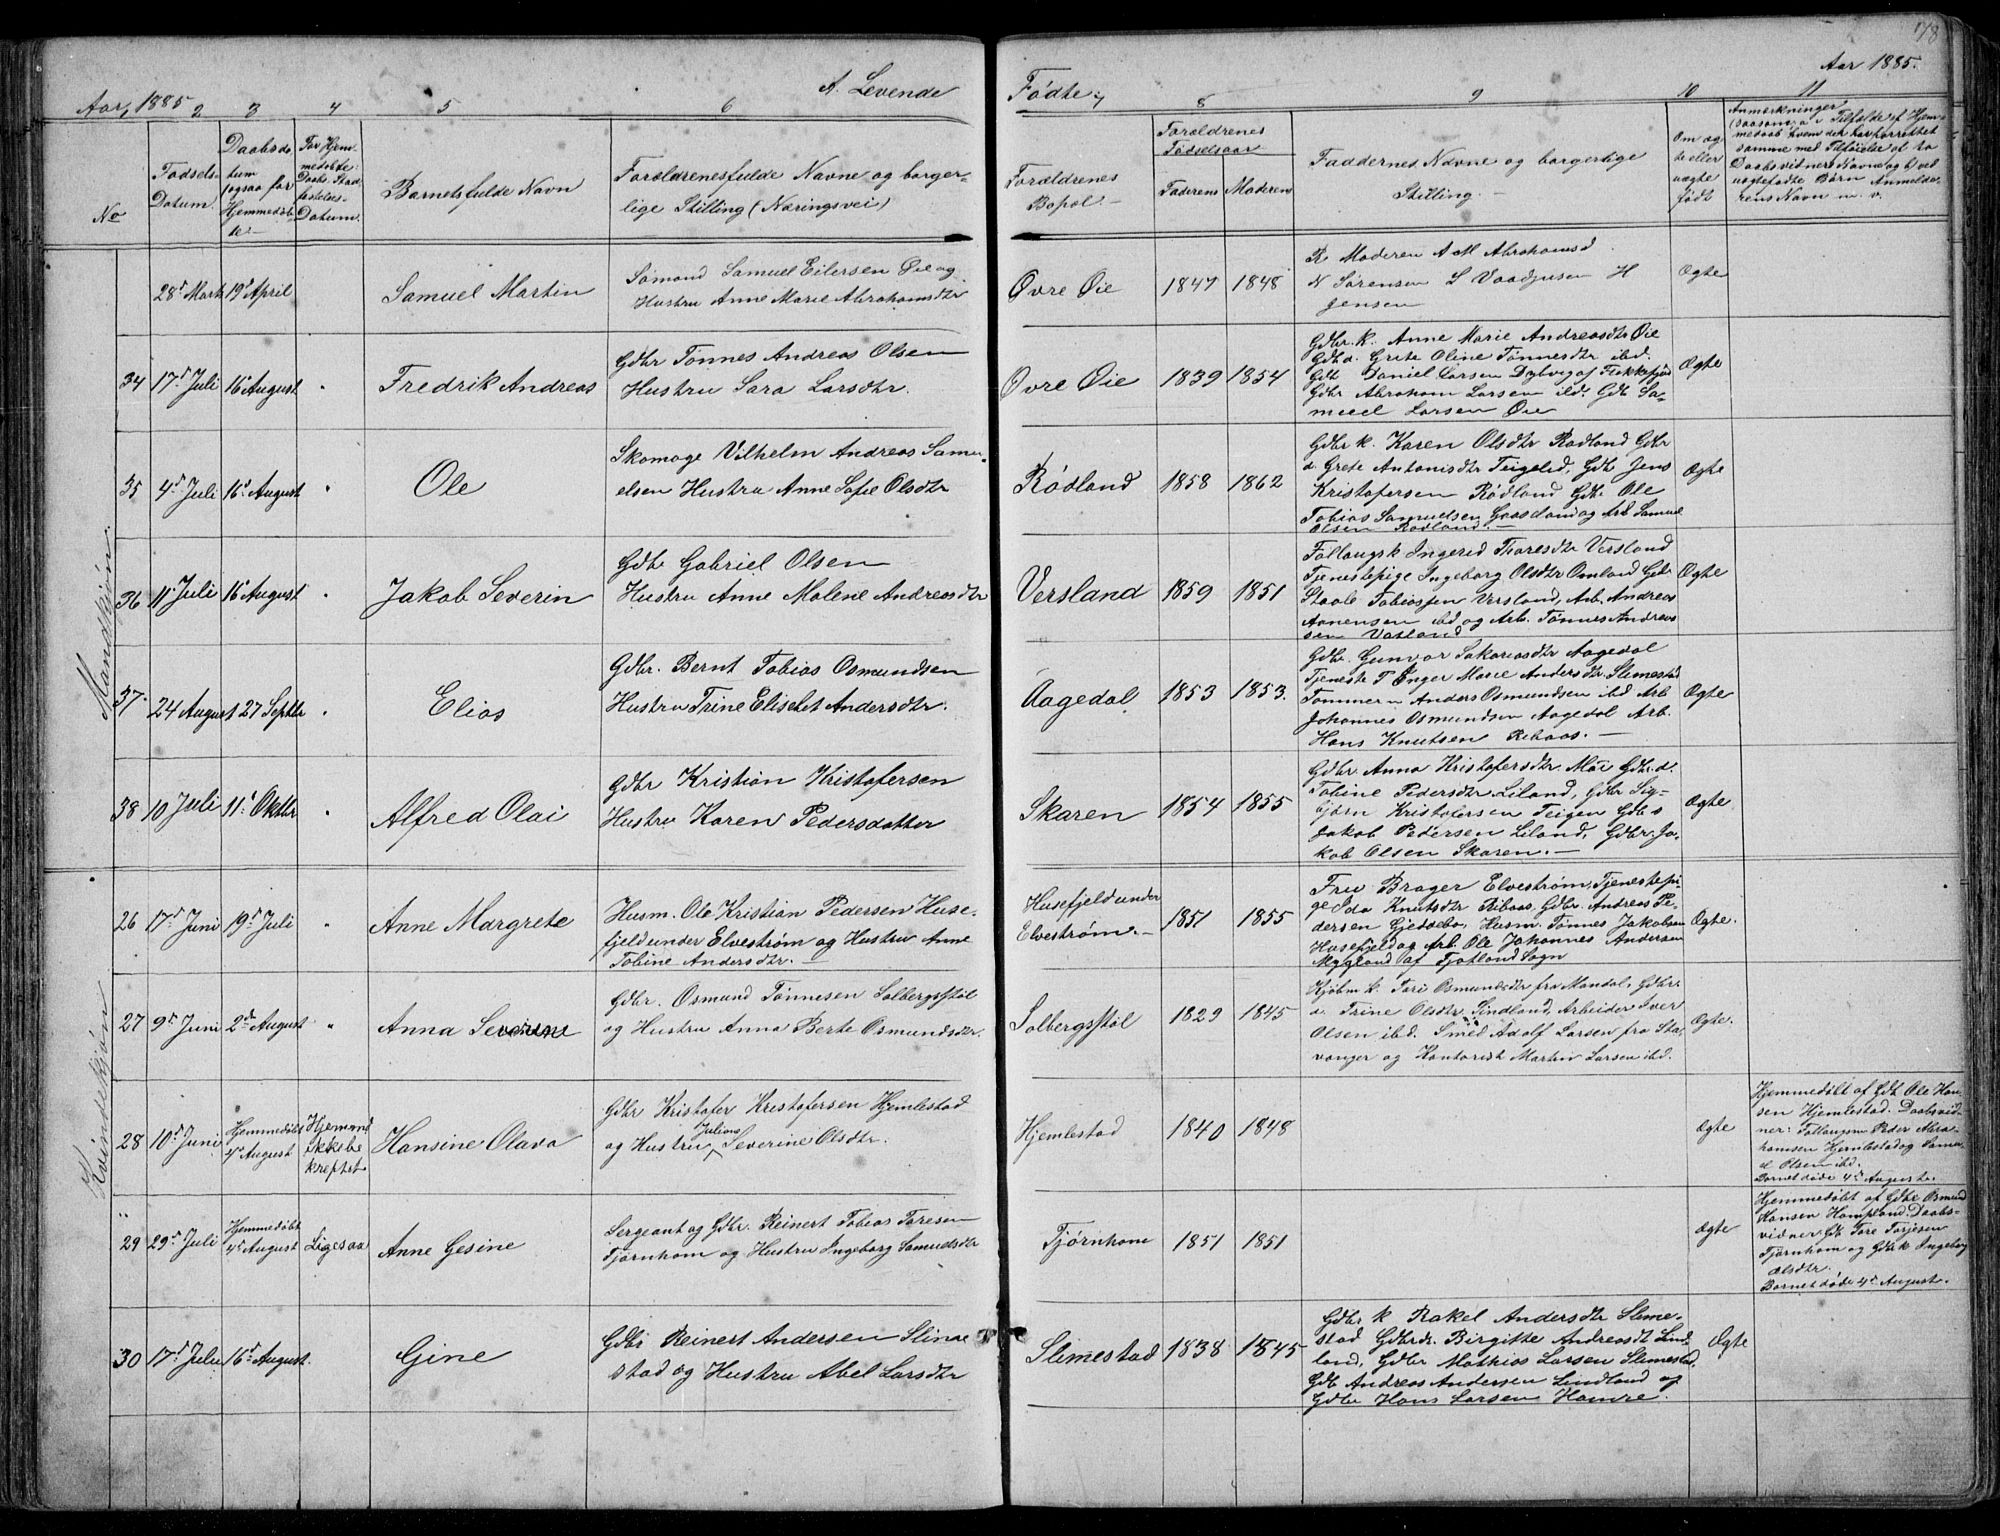 178
A. Levende Fødte. Aar 1885.
Aar, 1885
2 3 4 5 6 7 8 9 10 11
No
Fødsels-
Datum.
Daabsda-
tum
(ogsaa for
Hjemmedøb-
te.-
For Hjem-
medøbte:
Daabs Stad-
festelses-
Datum.
Barnetsfulde Navn
Forældrenesfulde Navne og borger-
lige Stilling (Næringsvei)
Forældrenes
Bopæl.-
Forældrenes
Fødselsaar
Faderens Moderens
Faddernes Navne og borgerlige
Stilling.-
Om æg
te eller
uægte
født
Anmærkninger
(saasom a i Tilfælde af Hjem-
medaab hvem der har forrettet
samme med Tilføielse af to
Daabsvidners Navne og b) ved
uægtefødte Børn Anmelde-
rens Navn m. v.
Mandkjøn.
28d Marts 19d April
Samuel Martin
Sømand Samuel Eilersen Øie og
Hustru Anne Marie Abrahamsdtr
Øvre Øie 1847 1848
R. Moderen A M Abrahamsd
N Sørensen L Vaadjusen H
Jensen
Ægte
34 17d Juli 16d August "
Fredrik Andreas
Gdbr Tønnes Andreas Olsen
Hustru Sara Larsdtr.
Øvre Øie 1839 1854
Gdbr. k. Anne Marie Andreasdtr Øie
Gdb d. Grete Oline Tønnesdtr ibd.
Gdb Daniel Larsen Dybvig af Flekkefjord
Gdbr Abraham Larsen ibd. Gdb Sa-
muel Larsen Øie
Ægte
35 4d Juli 16d August "
Ole
Skomage Vilhelm Andreas Samu-
elsen Hustru Anne Sofie Olsdtr
Rødland 1858 1862
Gdbr k. Karen Olsdtr Rødland Gdbr
d. Grete Antonisdtr Teigelid, Gdb Jens
Kristofersen Rødland Gdb. Ole
Tobias Samuelsen Gaasland og Arb Samuel
Olsen Rødland.-
Ægte
36 11d Juli 16d August "
Jakob Severin
Gdb. Gabriel Olsen
Hustru Anne Malene Andreasdtr
Versland 1859 1851
Follaugsk Ingerid Tharesdtr Versland
Tjenestepige Ingeborg Olsdtr Omland Gdb
Staale Tobiassen Versland, Arb. Andreas
Aanensen ibd og Arb. Tønnes Andreas
sen Vatland
Ægte
37. 24 August 27 Septbr "
Elias
Gdbr. Bernt Tobias Osmundsen
Hustru Trine Elisebet Andersdtr.
Aagedal 1853 1853.
Gdbr. Gunvor Sakariasdtr Aagedal
Tjeneste P Inger Marie Andersdtr Slimestad
Tømmerm Anders Osmundsen ibd Arb
Johannes Osmundsen Aagedal Arb.
Hans Knutsen Ribaas.-
Ægte
38 10 Juli 11d Oktbr "
Alfred Olai
Gdbr Kristian Kristofersen
Hustru Karen Pedersdatter
Skaren 1854 1855
Gdbr. Anna Kristofersdtr Moi Gdbr. d.
Tobine Pedersdtr Liland, Gdbr Sig-
bjørn Kristofersen Teigen Gdbs
Jakob Pedersen Liland, Gdbr. Ja-
kob Olsen Skaren.-
Ægte
Kvindekjøn
26 17d Juni 19d Juli "
Anne Margrete
Husm. Ole Kristian Pedersen Huse-
fjeld under Elvestrøm og Hustru Anne
Tobine Andersdtr.-
Husefjeld under
Elvestrøm.- 1851 1855
Fru Brager Elvestrøm, Tjenestepi-
ge Ida Knutsdtr Ribaas, Gdbr. Andreas Pe-
dersen Gjeddebo, Husm. Tønnes Jakobsen
Husefjeld og Arb. Ole Johannes Andersen
Mygland af Fjotland Sogn
Ægte.
27 9d Juni 2d August "
Anna Severine
Gdbr. Osmund Tønnesen Solbergsstøl
og Hustru Anna Berte Osmundsdtr.
Solbergsstøl 1829 1845
Kjøbm k. Tori Osmundsdtr fra Mandal, Gdbr.
d. Trine Olsdtr Sindland, Arbeider Iver
Olsen ibd. Smed Adolf Larsen fra Sta-
vanger og Kontorist Martin Larsen ibd.
Ægte.
28 10d Juni
Hjemmedøbt
4d August
Hjemmed
ikke be
kreftet
Hansine Olava
Gdbr Kristofer Kristofersen Hjemlestad
Juliane
og Hustru Severine Olsdtr.
Hjemlestad 1840 1848
Ægte
Hjemmedøbt af Gdb Ole Han-
sen Hjemlestad. Daabsvid-
ner: Follaugsm Peder Abra-
hamsen Hjemlestad og Samu-
el Olsen ibd.
Barnet døde 4d August.
29 29d Juli
Hjemmedøbt
4d August
Ligesaa
Anne Gesine
Sergeant og Gdbr. Reinert Tobias Taresen
Tjørnhom og Hustru Ingeborg Samuelsdtr
Tjørnhom 1851 1851
Ægte
Hjemmedøbt af Gdbr Osmund
Hansen Hompland. Daabs-
vidner Gdb Tore Terjesen
Tjørnhom og Gdb k Ingeborg
Olsdtr.
Barnet døde 4d August.
30 17d Juli 16d August.
Gine
Gdbr Reinert Andersen Slime
stad og Hustru Abel Larsdtr
Slimestad 1838 1845
Gdbr k Rakel Andersdtr Slime-
stad Gdbr d. Birgitte Andreasdt Lind-
land, Gdbr Mathias Larsen Slimestad,
Gdb Andreas Andersen Lindland og
Gdbr Hans Larsen Hamre.
Ægte